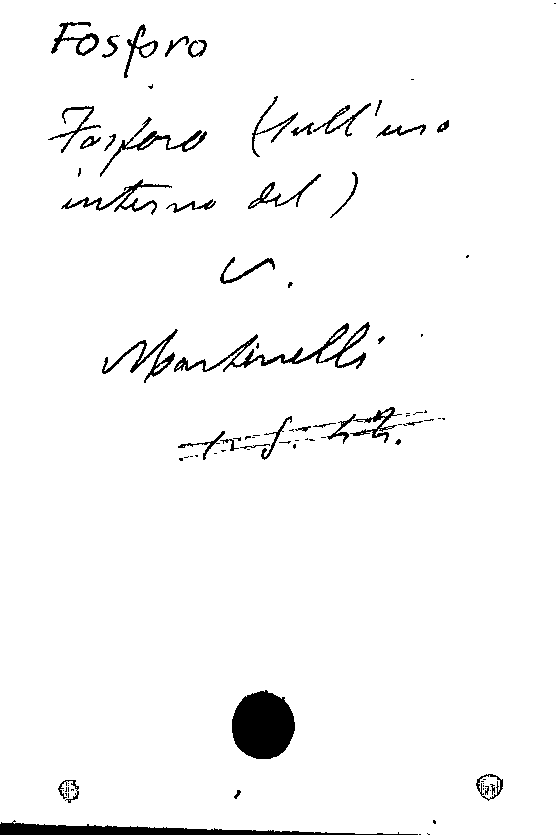 Fosforo
Fosforo (sull'uso
interno del)
V.
Martinelli